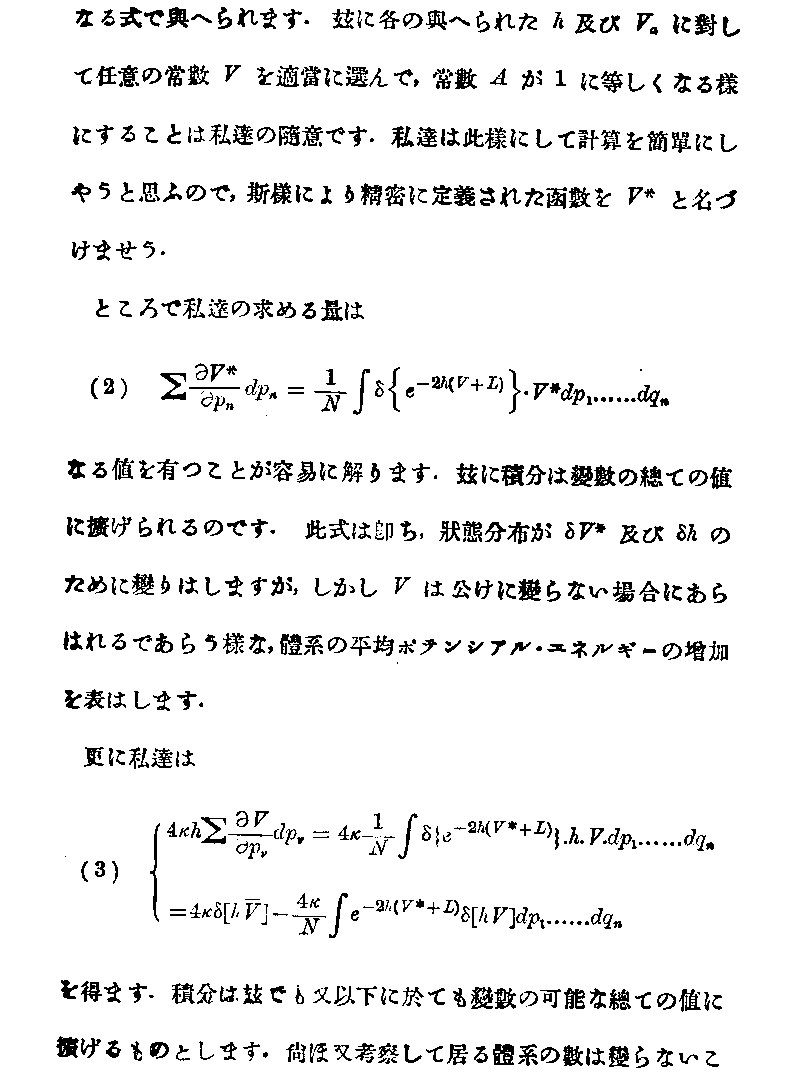 なる式で與へられます．玆に各の與へられた h 及び Vₐ に對し
て任意の常數 V を適當に選んで，常數 A が 1 に等しくなる樣
にすることは私達の隨意です．私達は此樣にして計算を簡單にし
やうと思ふので，斯樣により精密に定義された函數を V* と名づ
けませう．
ところで私達の求める量は
(2) ∑ ∂V*/∂pₙ dpₙ = 1/N ∫ δ{e^{-2h(V+L)}}·V*dp₁……dqₙ
なる値を有つことが容易に解ります．玆に積分は變數の總ての値
に擴げられるのです．此式は卽ち，狀態分布が δV* 及び δh の
ために變りはしますが，しかし V は公けに變らない場合にあら
はれるであらう樣な，體系の平均ポテンシアル・エネルギーの增加
を表はします．
更に私達は
(3) 4κh∑ ∂V/∂pᵥ dpᵥ = 4κ 1/N ∫ δ{e^{-2h(V*+L)}}.h.V.dp₁……dqₙ
=4κδ[h V̅]− 4κ/N ∫ e^{-2h(V*+L)}δ[hV]dp₁……dqₙ
を得ます．積分は玆でも又以下に於ても變數の可能な總ての値に
擴げるものとします．尙ほ又考察して居る體系の數は變らないこ